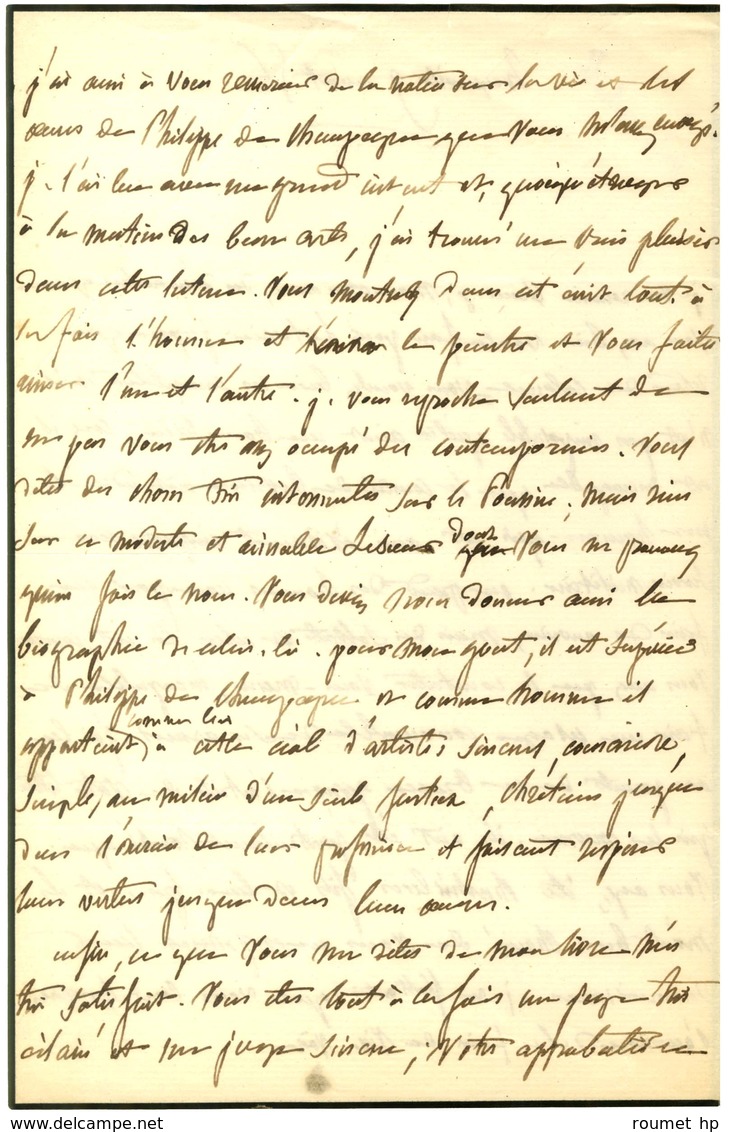 j'ai aussi à vous remercier de la notice sur la vie et les
œuvres de Philippe de Champagne que vous m'avez envoyé.
je l'ai lue avec un grand intérêt et, quoiqu'étranger
à la matière des beaux arts, j'ai trouvé un vrai plaisir
dans cette lecture. Vous montrez dans cet écrit tout à
la fois l'homme et le peintre et vous faites
aimer l'un et l'autre. je vous reproche seulement de
ne pas vous être assez occupé des contemporains. Vous
dites des choses très intéressantes sur le Poussin; mais rien
sur ce modeste et aimable Lesueur dont vous ne prononcez
qu'une fois le nom. Vous devriez nous donner aussi la
biographie de celui-là. pour mon gout, il est supérieur
à Philippe de Champagne et comme homme il
appartient comme lui à cette école d'artistes sincères,
simples, au milieu d'un siècle fastueux, chrétiens jusque
dans l'exercice de leur profession et faisant respirer
leurs vertus jusque dans leurs œuvres.
enfin, ce que vous me dites de mon livre m'a
très satisfait. Vous êtes tout à la fois un juge très
éclairé et un juge sincère; votre approbation
roumet hp